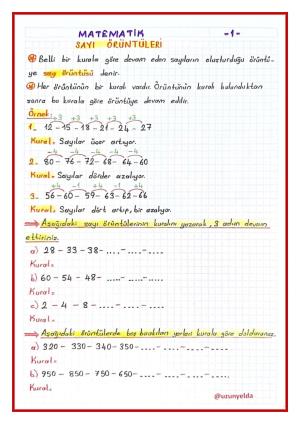 MATEMATİK -1-
SAYI ÖRÜNTÜLERİ
Belli bir kurala göre devam eden sayıların oluşturduğu örüntü-
ye sayı örüntüsü denir.
Her örüntünün bir kuralı vardır. Örüntünün kuralı bulunduktan
sonra bu kurala göre örüntüye devam edilir.
Örnek:
+3 +3 +3 +3 +3
1- 12 - 15 - 18 - 21 - 24 - 27
Kural= Sayılar üçer artıyor.
-4 -4 -4 -4 -4
2- 80 - 76 - 72 - 68 - 64 - 60
Kural= Sayılar dörder azalıyor.
+4 -1 +4 -1 +4
3- 56 - 60 - 59 - 63 - 62 - 66
Kural= Sayılar dört artıp, bir azalıyor.
Aşağıdaki sayı örüntülerinin kuralını yazarak, 3 adım devam
ettiriniz.
a) 28 - 33 - 38 - .... - .... - ....
Kural=
b) 60 - 54 - 48 - .... - .... - ....
Kural=
c) 2 - 4 - 8 - .... - .... - ....
Kural=
Aşağıdaki örüntülerde boş bırakılan yerleri kurala göre doldurunuz.
a) 320 - 330 - 340 - 350 - .... - .... - .... - ....
Kural=
b) 950 - 850 - 750 - 650 - .... - .... - .... - ....
Kural=
@uzunyelda